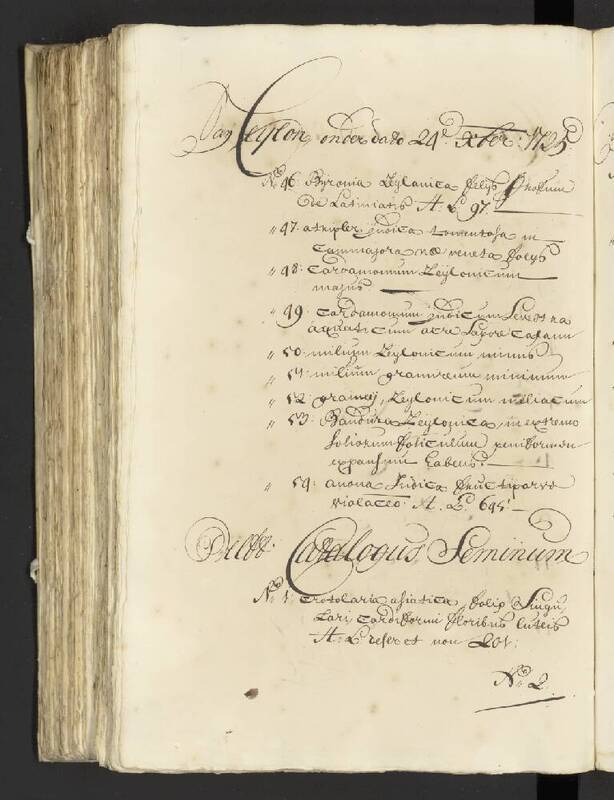 Van Ceylon onder dato 24:e xber: 1725
N:o 46. Bryonia Zeylanica folys
de Latiniatis H: L: 97.
" 47. atriplex indica tomentosa in
folys
" 48: Cardamomum Zeylonicum
majus
" 49: Cardamomum indicum
aquaticum acre Sapore
" 50: milium Zeylonicum minus
" 51: milium gramineum minimum
" 52: gramen, Zeylonicum miliacum
" 53: Bandura Zeylonica, in extremo
foliorum foliculum peniformem
expansum habens.
" 54: anona Indica fructi parvo
violaceo. H. L: 645:
Dilbb: Catalogus Seminum
N:o 1: Crotolaria asiatica folio Singu,
lari Cordiformi floribus luteis
H: L: refert non 201:
N:o 2.